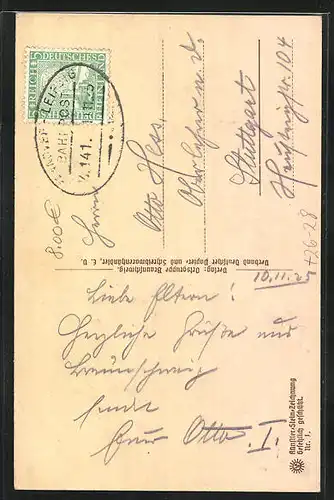 DEUTSCHES REICH
HANNOVER-LEIPZIG
BAHNPOST
Z.141
8.00€
Herrn
Otto Hess
Oberlehrer a. D.
Stuttgart
104
Verlag: Ortsgruppe Braunschweig.
Verband Deutscher Papier- und Schreibwarenhändler, E. V.
10.11.25
+26-28
Liebe Eltern!
Herzliche Grüße aus
Braunschweig
sendet
Euer Otto I.
Künstler-Stein-Zeichnung
Gesetzlich geschützt.
Nr. 1.